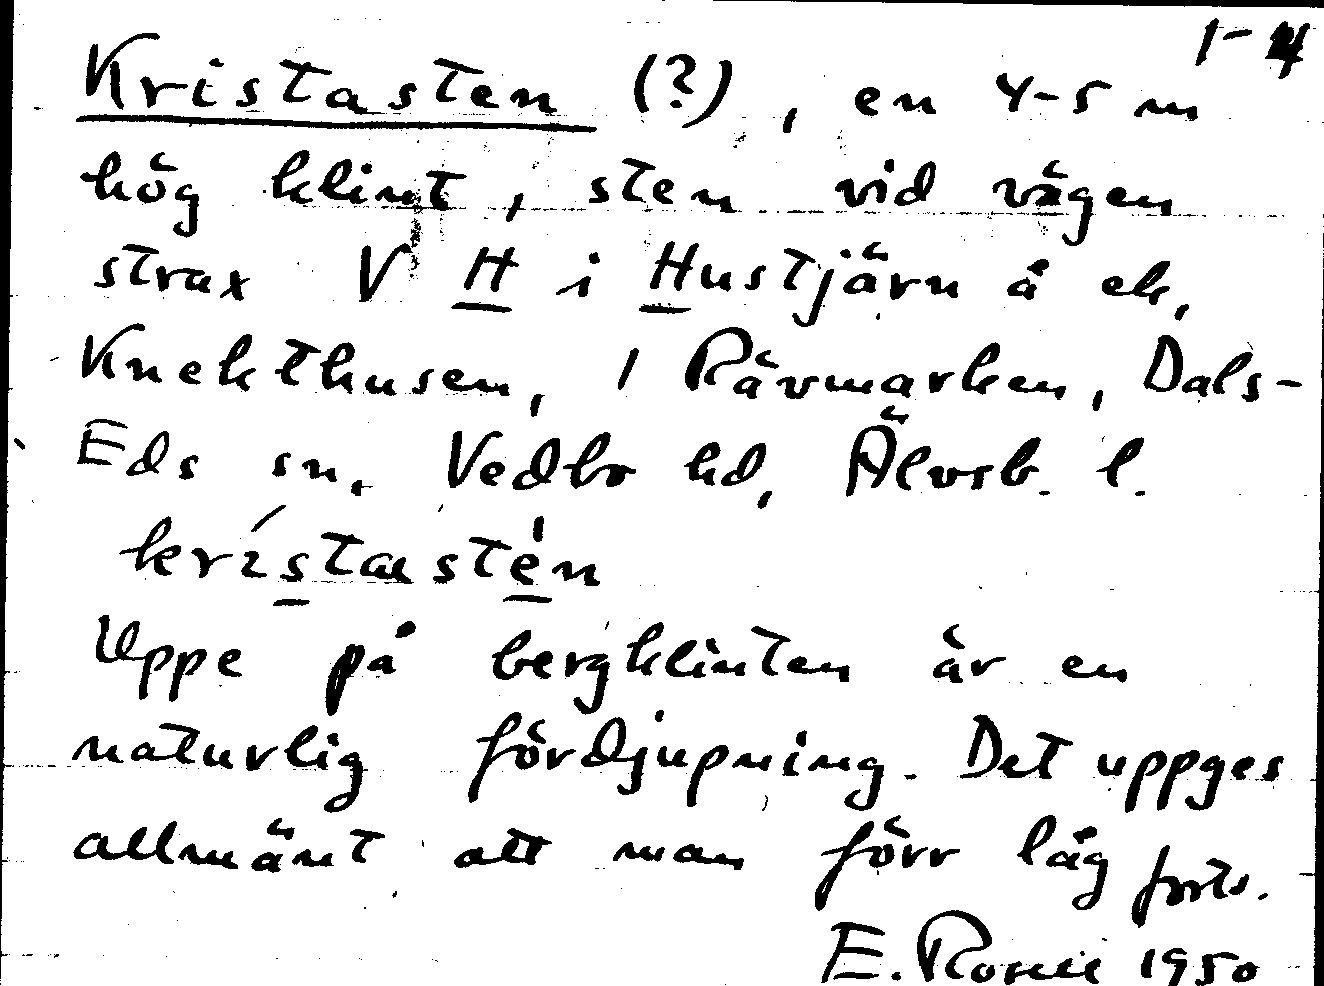 1-4
Kristasten (?), en 4-5 m
hög klint, sten vid vägen
strax V H i Hustjärn å ek.
Knekthusen, 1 Rävmarken, Dals-
Eds sn. Vedbo hd, Älvsb. l.
krístastén
Uppe på bergklinten är en
naturlig fördjupning. Det uppges
allmänt att man förr låg forts.
E. 1950